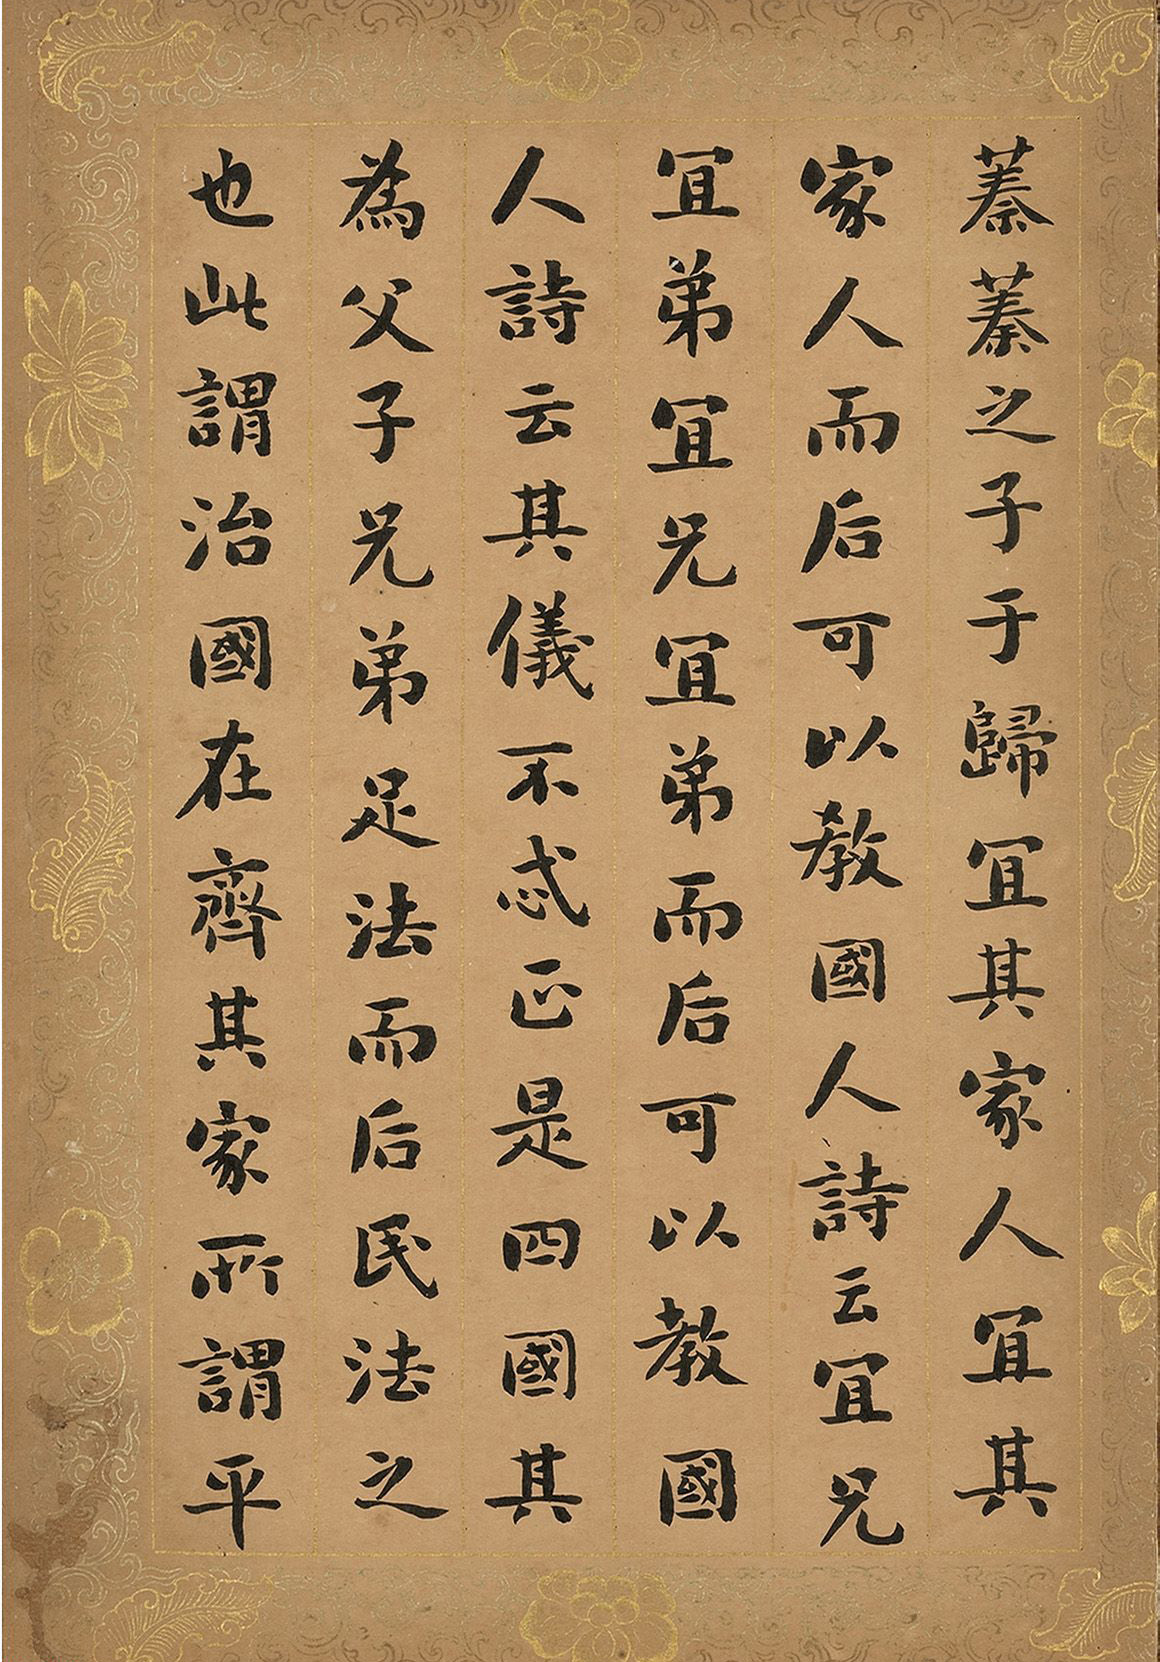 蓁蓁之子于歸宜其家人宜其
家人而后可以教國人詩云宜兄
宜弟宜兄宜弟而后可以教國
人詩云其儀不忒正是四國其
為父子兄弟足法而后民法之
也此謂治國在齊其家所謂平